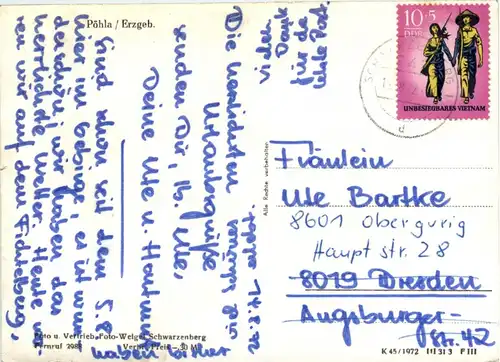 Pöhla / Erzgeb.
Die herzlichsten
Urlaubsgrüße
senden Dir, lb. Ute,
Deine Ute u. Hartmut
Sind schon seit dem 5.8.
hier im Gebirge, es ist wun-
derschön, wir haben das
herrlichste Wetter. Heute wa-
ren wir auf dem Fichtelberg.
haben bisher
Vielen
Dank
für die
liebe Post.
10+5
DDR
UNBESIEGBARES VIETNAM
Alle Rechte vorbehalten
Fräulein
Ute Bartke
8601 Obergurig
Hauptstr. 28
8019 Dresden
Augsburger-
str. 42
Foto u. Vertrieb: Foto-Weigel Schwarzenberg
Fernruf 298
K 45/1972 III 31 3 F III